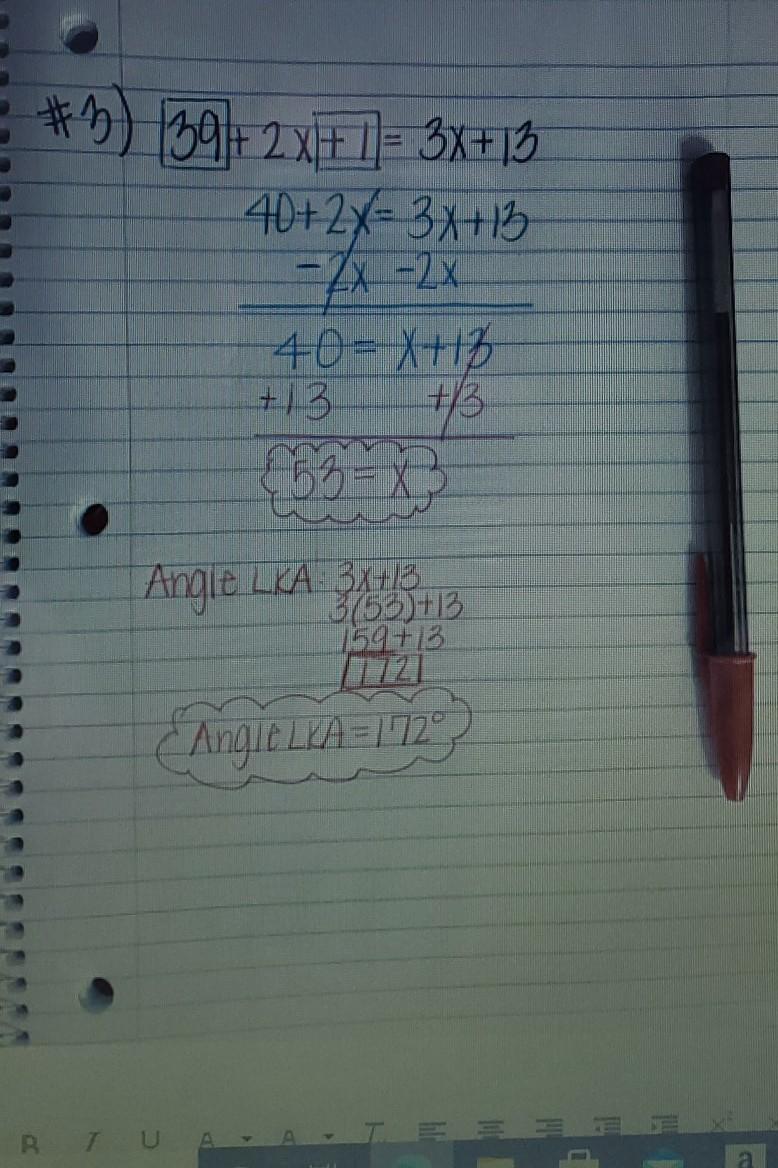 #3) 39 + 2x + 1 = 3x + 13
40 + 2x = 3x + 13
-2x -2x
40 = x + 13
+13 +13
53 = x
Angle LKA: 3x+13
3(53)+13
159+13
172
Angle LKA = 172°
B I U A A T x²
a